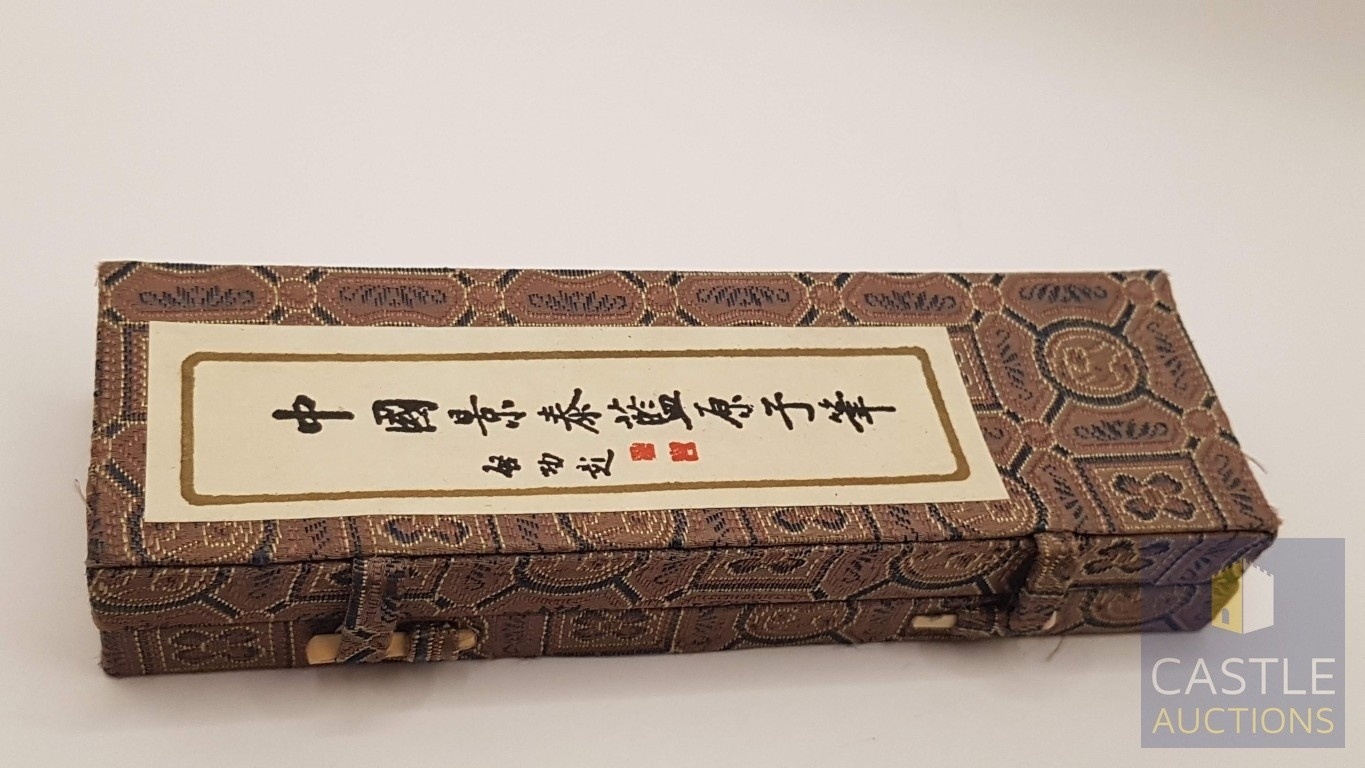 中國景泰藍原子筆
啓功題
CASTLE
AUCTIONS